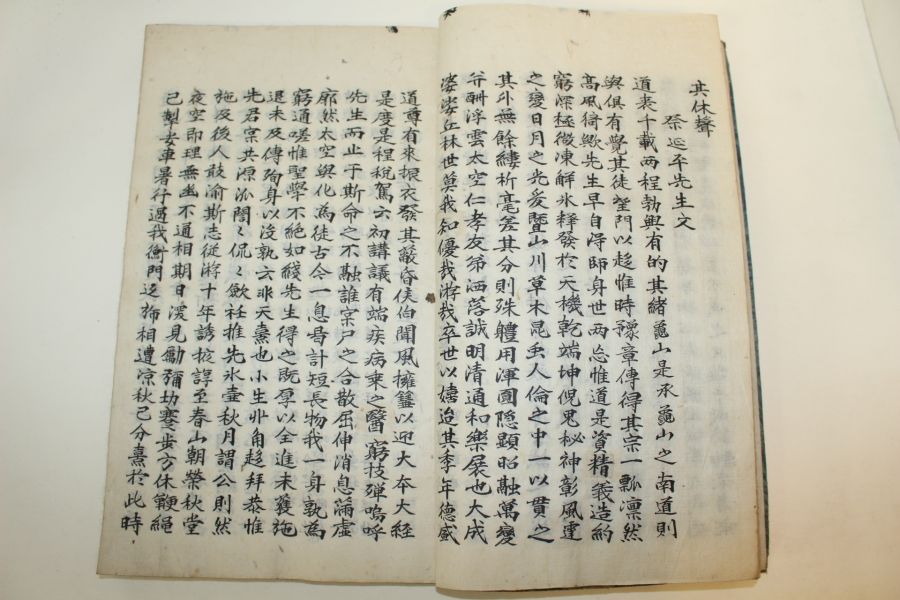 其休聲
祭延平先生文
道喪千載两程勃興有的其緒龜山是承龜山之南道則
與俱有覺其徒望門以趍惟時豫章傳得其宗一瓢凛然
高風猗歟先生早自得師身世两忘惟道是資精義造約
窮深極微凍解氷釋發於天機乾端坤倪鬼秘神彰風霆
之變日月之光爰曁山川草木昆虫人倫之中一以貫之
其外無餘縷析毫差其分則殊軆用渾圓隐顕昭融萬變
并酬浮雲太空仁孝友弟洒落誠明清通和樂展也大成
婆娑丘林世莫我知優哉游哉卒世以嬉迨其季年德盛
道尊有來振衣發其蔽昏侯伯聞風擁篲以迎大本大経
是度是程稅駕云初講議有端疾病乗之醫窮技殫嗚呼
先生而止于斯命之不融誰寔尸之合散屈伸消息滿虚
廓然太空與化為徒古今一息曷計短長物我一身孰為
窮通嗟惟聖學不絶如綫先生得之既厚以全進未獲施
退未及傳殉身以沒孰云非天熹也小生丱角趍拜恭惟
先君寔共源派誾〻侃〻歛衽推先氷壺秋月謂公則然
施及後人敢渝斯志従游十年誘掖諄至春山朝榮秋堂
夜空即理無幽不通相期日深見勵彌切蹇步方休鞭繩
已掣安車暑行過我衡門返旆相遭凉秋已分熹於此時